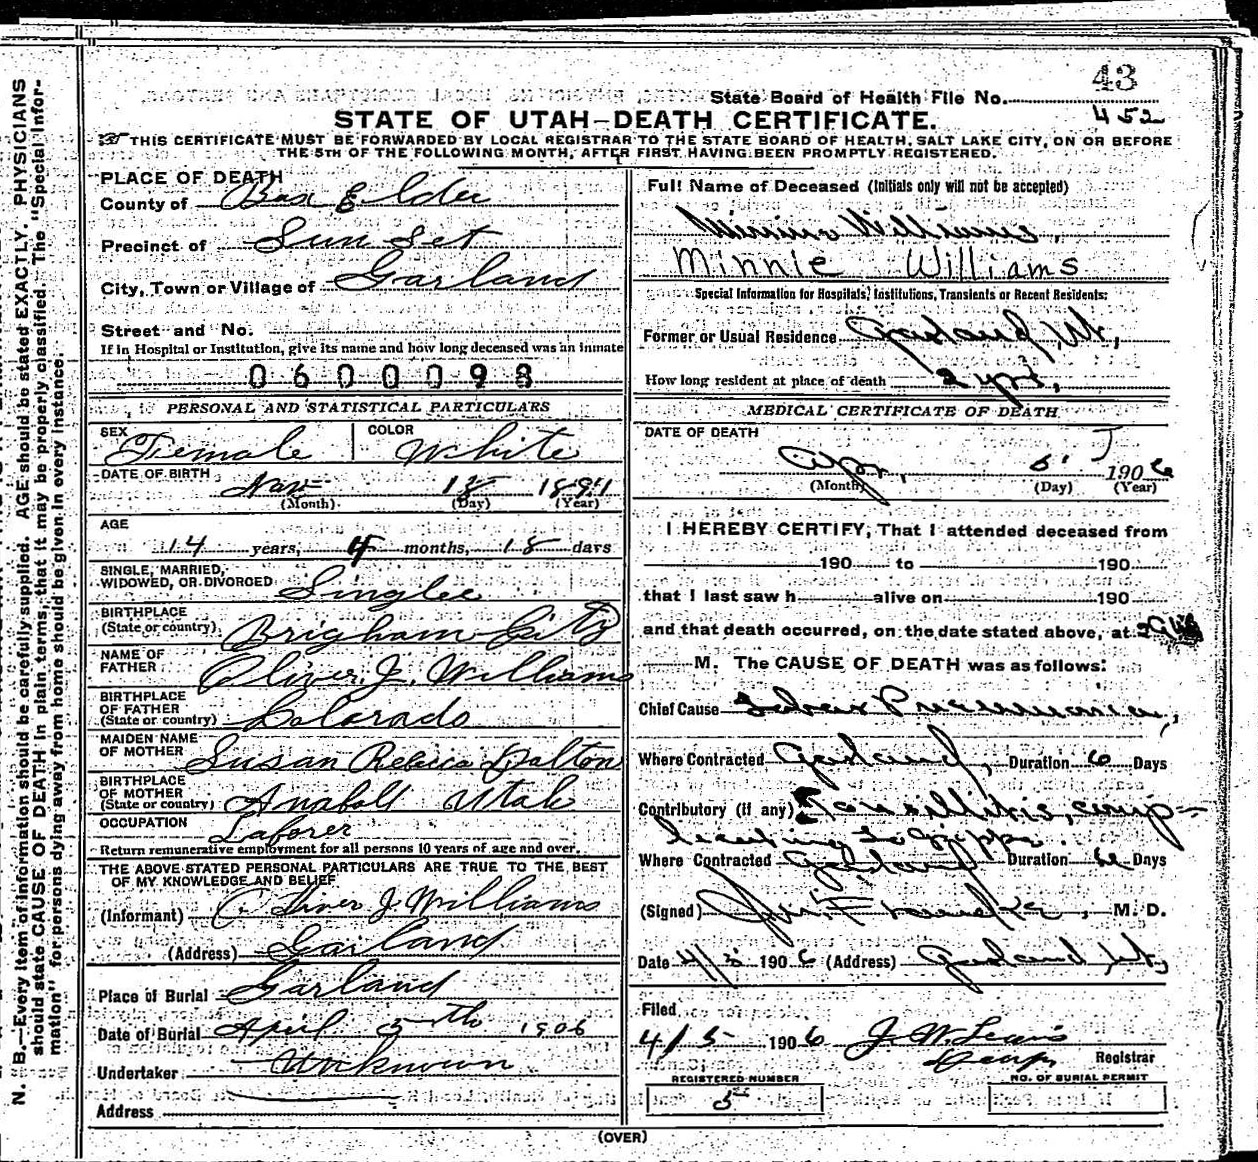 43
State Board of Health File No.
452
STATE OF UTAH—DEATH CERTIFICATE.
THIS CERTIFICATE MUST BE FORWARDED BY LOCAL REGISTRAR TO THE STATE BOARD OF HEALTH, SALT LAKE CITY, ON OR BEFORE
THE 5TH OF THE FOLLOWING MONTH, AFTER FIRST HAVING BEEN PROMPTLY REGISTERED.
N. B.—Every item of information should be carefully supplied. AGE should be stated EXACTLY. PHYSICIANS
should state CAUSE OF DEATH in plain terms, that it may be properly classified. The "Special Infor-
mation" for persons dying away from home should be given in every instance.
PLACE OF DEATH
County of Box Elder
Precinct of Sun Set
City, Town or Village of Garland
Street and No.
If in Hospital or Institution, give its name and how long deceased was an inmate
0600098
PERSONAL AND STATISTICAL PARTICULARS
SEX Female COLOR White
DATE OF BIRTH Nov 18 1891
(Month) (Day) (Year)
AGE
14 years, 4 months, 18 days
SINGLE, MARRIED,
WIDOWED, OR DIVORCED Singlee
BIRTHPLACE
(State or country) Brigham City
NAME OF
FATHER Oliver J. Williams
BIRTHPLACE
OF FATHER
(State or country) Colorado
MAIDEN NAME
OF MOTHER Susan Rebecca Dalton
BIRTHPLACE
OF MOTHER
(State or country) Anabell Utah
OCCUPATION Laborer
Return remunerative employment for all persons 10 years of age and over.
THE ABOVE STATED PERSONAL PARTICULARS ARE TRUE TO THE BEST
OF MY KNOWLEDGE AND BELIEF
(Informant) Oliver J. Williams
(Address) Garland
Place of Burial Garland
Date of Burial April 5th 1906
Undertaker Unknown
Address
Full Name of Deceased (Initials only will not be accepted)
Minnie Williams,
Minnie Williams
Special Information for Hospitals, Institutions, Transients or Recent Residents:
Former or Usual Residence Garland, Ut,
How long resident at place of death 2 yrs,
MEDICAL CERTIFICATE OF DEATH
DATE OF DEATH
Apr, 1906
(Month) (Day) (Year)
I HEREBY CERTIFY, That I attended deceased from
190 to 190
that I last saw h alive on 190
and that death occurred, on the date stated above, at
M. The CAUSE OF DEATH was as follows:
Chief Cause Lobar Pneumonia,
Where Contracted Garland, Duration 6 Days
Contributory (if any) Tonsillitis, comp-
licating La Grippe.
Where Contracted Garland Duration Days
(Signed) , M. D.
Date 4/3 1906 (Address) Garland, Ut,
Filed
4/5 1906 J. W. Lewis
Registrar
REGISTERED NUMBER
5
NO. OF BURIAL PERMIT
(OVER)